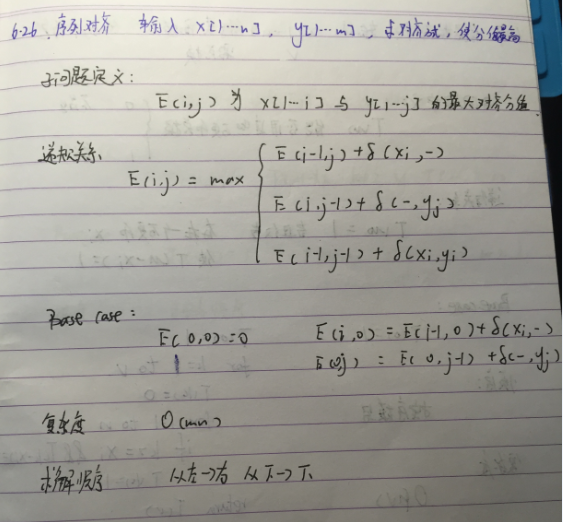 6.26. 序列对齐 输入 x[1…n], y[1…m], 求对齐方式, 使分值最高
子问题定义:
E(i,j) 为 x[1…i] 与 y[1…j] 的最大对齐分值.
递推关系.
E(i-1,j) + δ(xi,-)
E(i,j) = max
E(i,j-1) + δ(-,yj)
E(i-1,j-1) + δ(xi,yj)
Base case:
E(0,0)=0 E(i,0) = E(i-1,0)+δ(xi,-)
E(0,j) = E(0,j-1) + δ(-,yj)
复杂度 O(mn)
求解顺序 从左→右 从下→